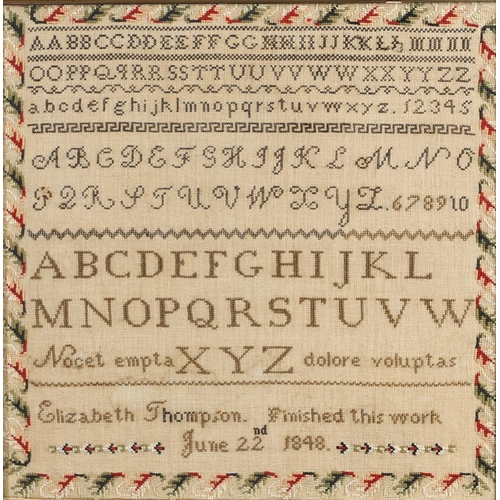 AABBCCDDEEFFGGHHIIJJKKLLMMNN
OOPPQQRRSSTTUUVVWWXXYYZZ
abcdefghijklmnopqrstuvwxyz.12345
ABCDEFGHIJKLMNO
PQRSTUVWXYZ.678910
ABCDEFGHIJKL
MNOPQRSTUVW
Nocet empta XYZ dolore voluptas
Elizabeth Thompson. Finished this work
June 22nd 1848.